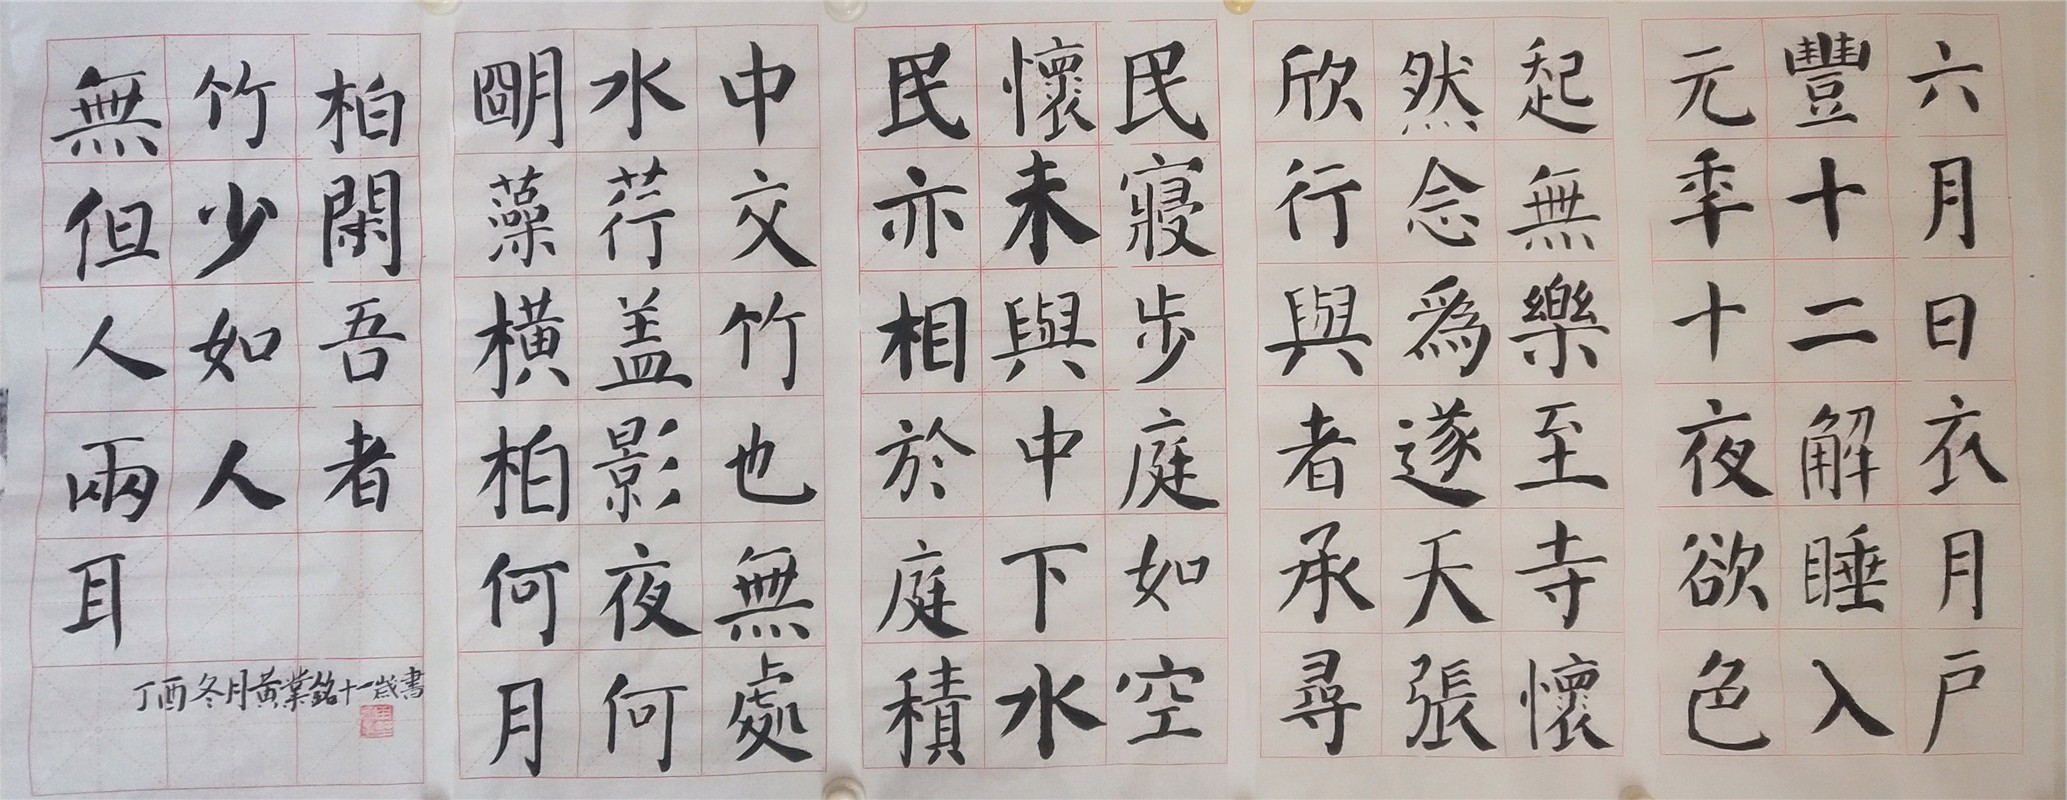 元豐六
秊十月
十二日
夜解衣
欲睡月
色入戶
欣然起
行念無
與爲樂
者遂至
承天寺
尋張懷
民懷民
亦未寢
相與步
於中庭
庭下如
積水空
朙水中
藻荇交
橫盖竹
柏影也
何夜無
月何處
無竹柏
但少閑
人如吾
兩人者
耳
丁酉冬月黃業銘十一歲書